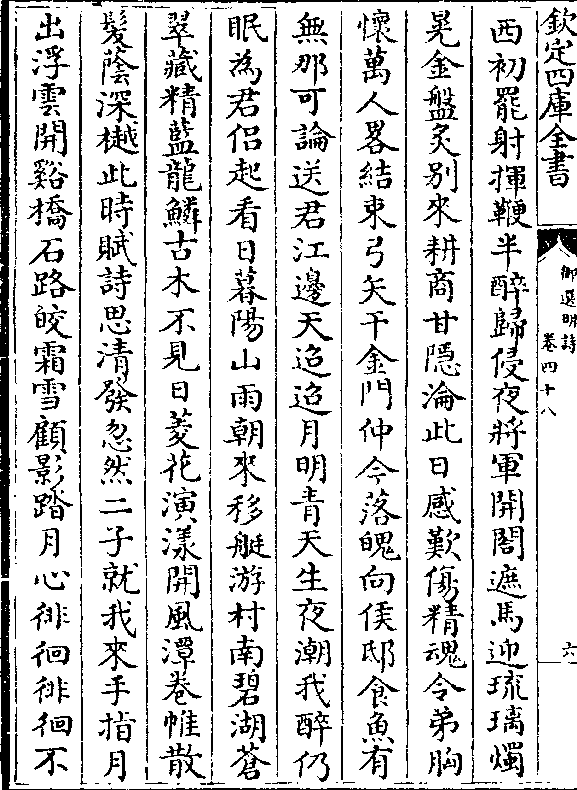 欽定四庫全書
御選明詩
卷四十八
六
西初罷射揮鞭半醉歸侵夜將軍開閤遮馬迎琉璃燭
晃金盤炙别來耕商甘隱淪此日感歎傷精魂令弟胸
懷萬人畧結束弓矢干金門仲今落魄向侯邸食魚有
無那可論送君江邊天迢迢月明青天生夜潮我醉仍
眠為君侶起看日暮陽山雨朝來移艇游村南碧湖蒼
翠藏精藍龍鱗古木不見日菱花演漾開風潭卷帷散
髮蔭深樾此時賦詩思清發忽然二子就我來手指月
出浮雲開谿橋石路皎霜雪顧影踏月心徘徊徘徊不